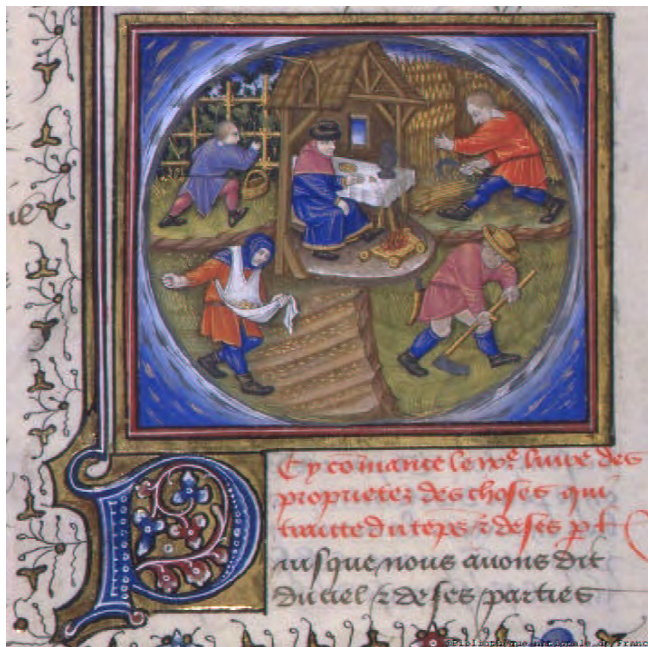 Cy cõmance le ix.e livre des
proprietez des choses qui
traitte du tẽps ⁊ de ses p
Puisque nous avons dit
du ciel ⁊ de ses parties
©Bibliothèque nationale de Franc